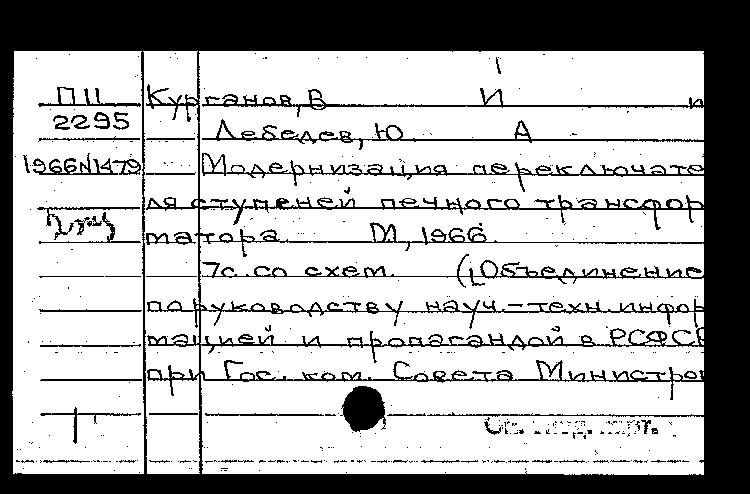 П11 Курганов, В И и
2295 Лебедев, Ю. А
1966N1479 Модернизация переключате
ля ступеней печного трансфор
матора. М, 1966.
7с. со схем. (Объединение
по руководству науч.-техн. инфор
мацией и пропагандой в РСФСР
при Гос. ком. Совета Министров